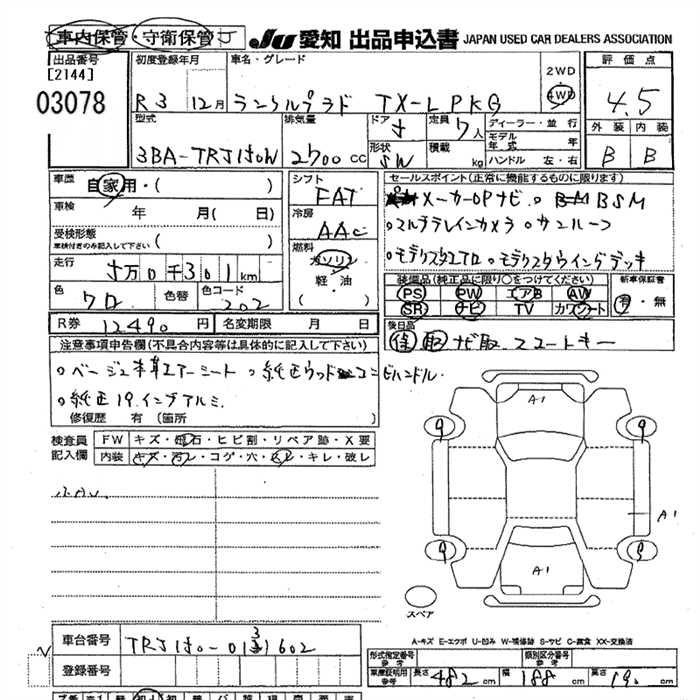 車内保管・守衛保管 J
JU 愛知 出品申込書 JAPAN USED CAR DEALERS ASSOCIATION
出品番号
[2144]
03078
初度登録年月
R3 12月
車名・グレード
ランクルプラド TX-L PKG
2WD
4WD
評価点
4.5
外装 内装
B B
型式
3BA-TRJ150W
排気量
2700 cc
ドア
5
定員
7人
形状
SW
積載
kg
ディーラー・並行
モデル年式 年
ハンドル 左・右
車歴
自家用・( )
車検
年 月( 日)
受検形態
車検付きのみ記入して下さい ( )
走行
5万0千301km
色
クロ
色替
色コード
202
シフト
FAT
冷房
AAC
燃料
ガソリン
軽・油
( )
セールスポイント(正常に機能するものに限ります)
メーカーOPナビ。BSM
。マルチテレインカメラ。サンルーフ
。モデリスタエアロ。モデリスタウイングデッキ
装備品(純正品に限り○をつけてください)
PS PW エアB AW
SR ナビ TV カワシート
新車保証書
有・無
後日品
保 取 ナビ取. スマートキー
R券 12490 円
名変期限 月 日
注意事項申告欄(不具合内容等は具体的に記入して下さい)
。ベージュ本革エアーシート 。純正ウッドコンビハンドル
。純正19インチアルミ.
修復歴 有(箇所 )
検査員
記入欄
FW キズ・飛石・ヒビ割・リペア跡・X要
内装 キズ・汚レ・コゲ・穴・スレ・キレ・破レ
A1
A1
A1
スペア
A-キズ E-エクボ U-凹み W-補修跡 S-サビ C-腐食 XX-交換済
車台番号
登録番号
形式指定番号
参考
類別区分番号
参考
車庫証明用
参考
長さ 482 cm
幅 188 cm
高さ